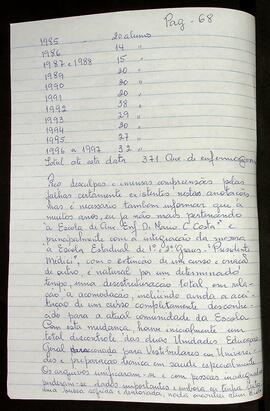 Pag - 68
1985 — 20 alunos
1986 14 "
1987 e 1988 15 "
1989 20 "
1990 20 "
1991 20 "
1992 38 "
1993 29 "
1994 20 "
1995 27 "
1996 a 1997 32 "
Total até esta data 371 Aux. de enfermagem
Peço desculpas e imensas compreensões pelas
falhas certamente existentes nestas anotações
mas, é necessário também informar que a
muitos anos, eu já não mais pertencendo
a Escola de Aux. Enf. Dr. Mário C. Costa e
principalmente com a integração da mesma
à Escola Estadual de 1º 2º Graus - "Presidente
Médici", com o extinção de um curso e criação
de outro, é natural por um determinado
tempo, uma desestruturação total, em rela-
ção à acomodação, incluindo ainda a acei-
tação de um curso completamente desconhe-
cido para a atual comunidade da Escola.
Com esta mudança, houve inicialmente um
total descontrole das duas Unidades Educação
Geral para Vestibulares em Universi-
e preparação técnica em saúde especializada
Os arquivos unificaram-se e com pessoas inadequadas
perderam-se dados importantes e embora eu